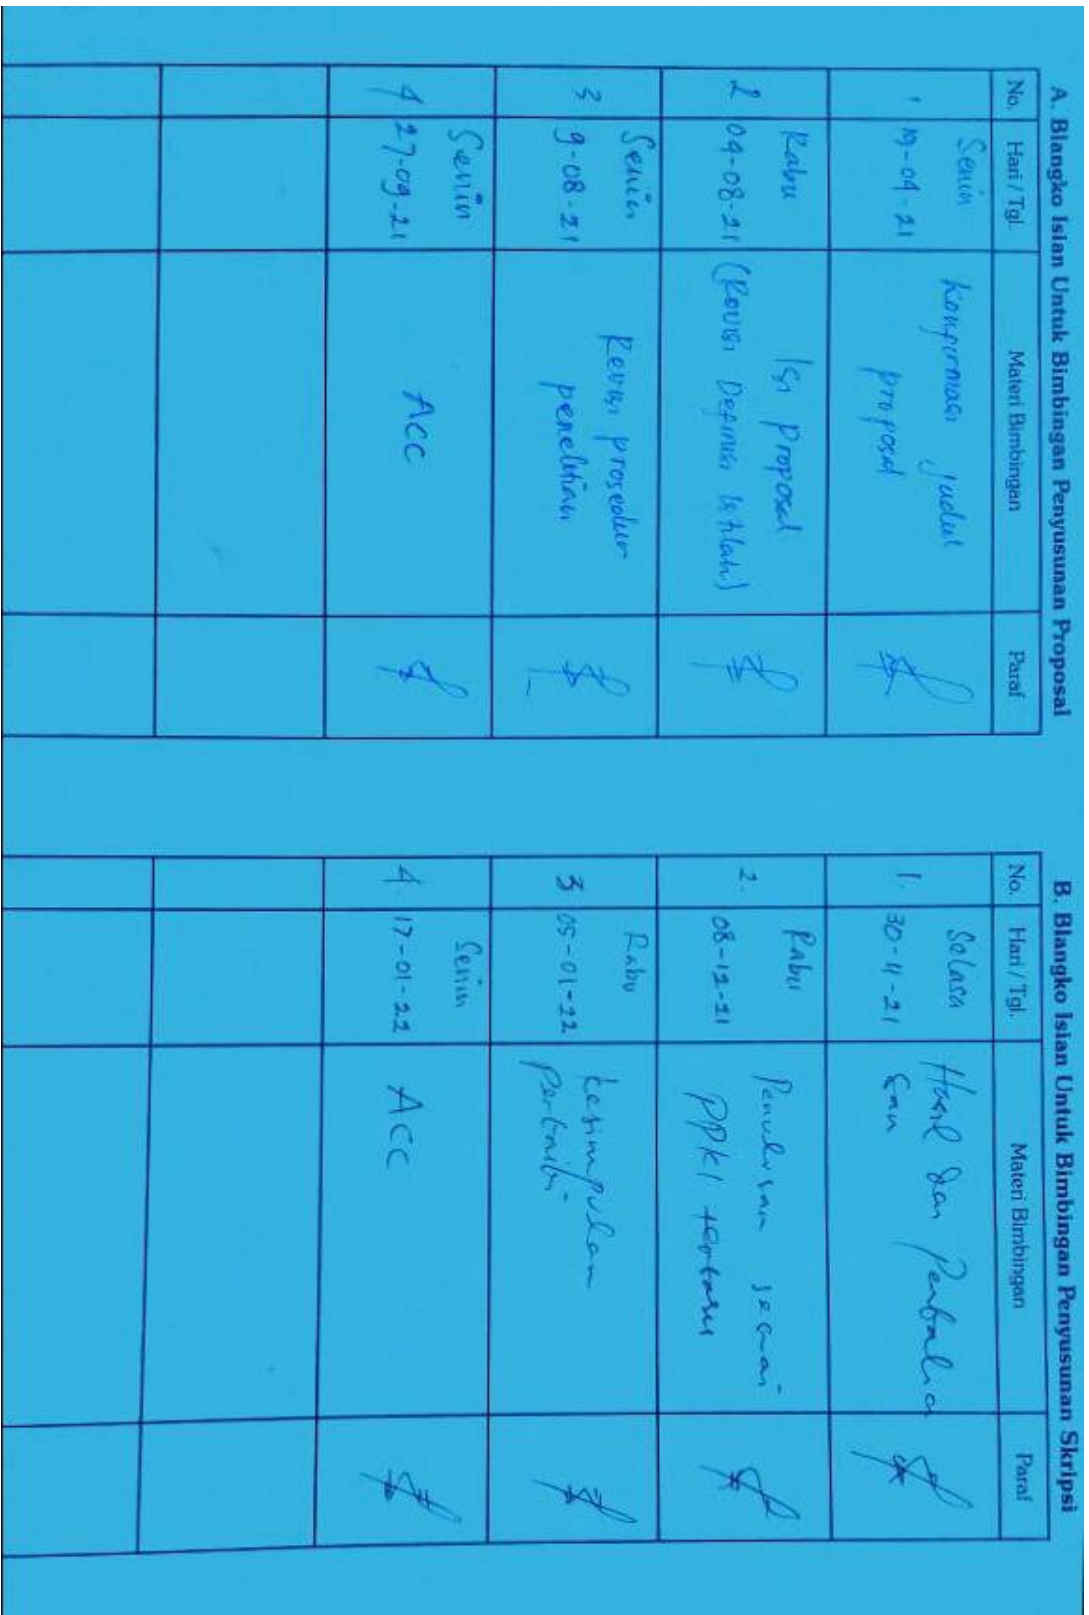 A. Blangko Isian Untuk Bimbingan Penyusunan Proposal
No. Hari / Tgl. Materi Bimbingan Paraf
1 Senin
19-04-21
Konfirmasi judul
proposal
2 Rabu
04-08-21
Isi Proposal
(Revisi Definisi Istilah)
3 Senin
9-08-21
Revisi prosedur
penelitian
4 Senin
27-09-21
ACC
B. Blangko Isian Untuk Bimbingan Penyusunan Skripsi
No. Hari / Tgl. Materi Bimbingan Paraf
1. Selasa
30-11-21
Hasil dan Pembaha
san
2. Rabu
08-12-21
Penulisan sesuai
PPKI terbaru
3 Rabu
05-01-22
Kesimpulan
4. Senin
17-01-22
ACC